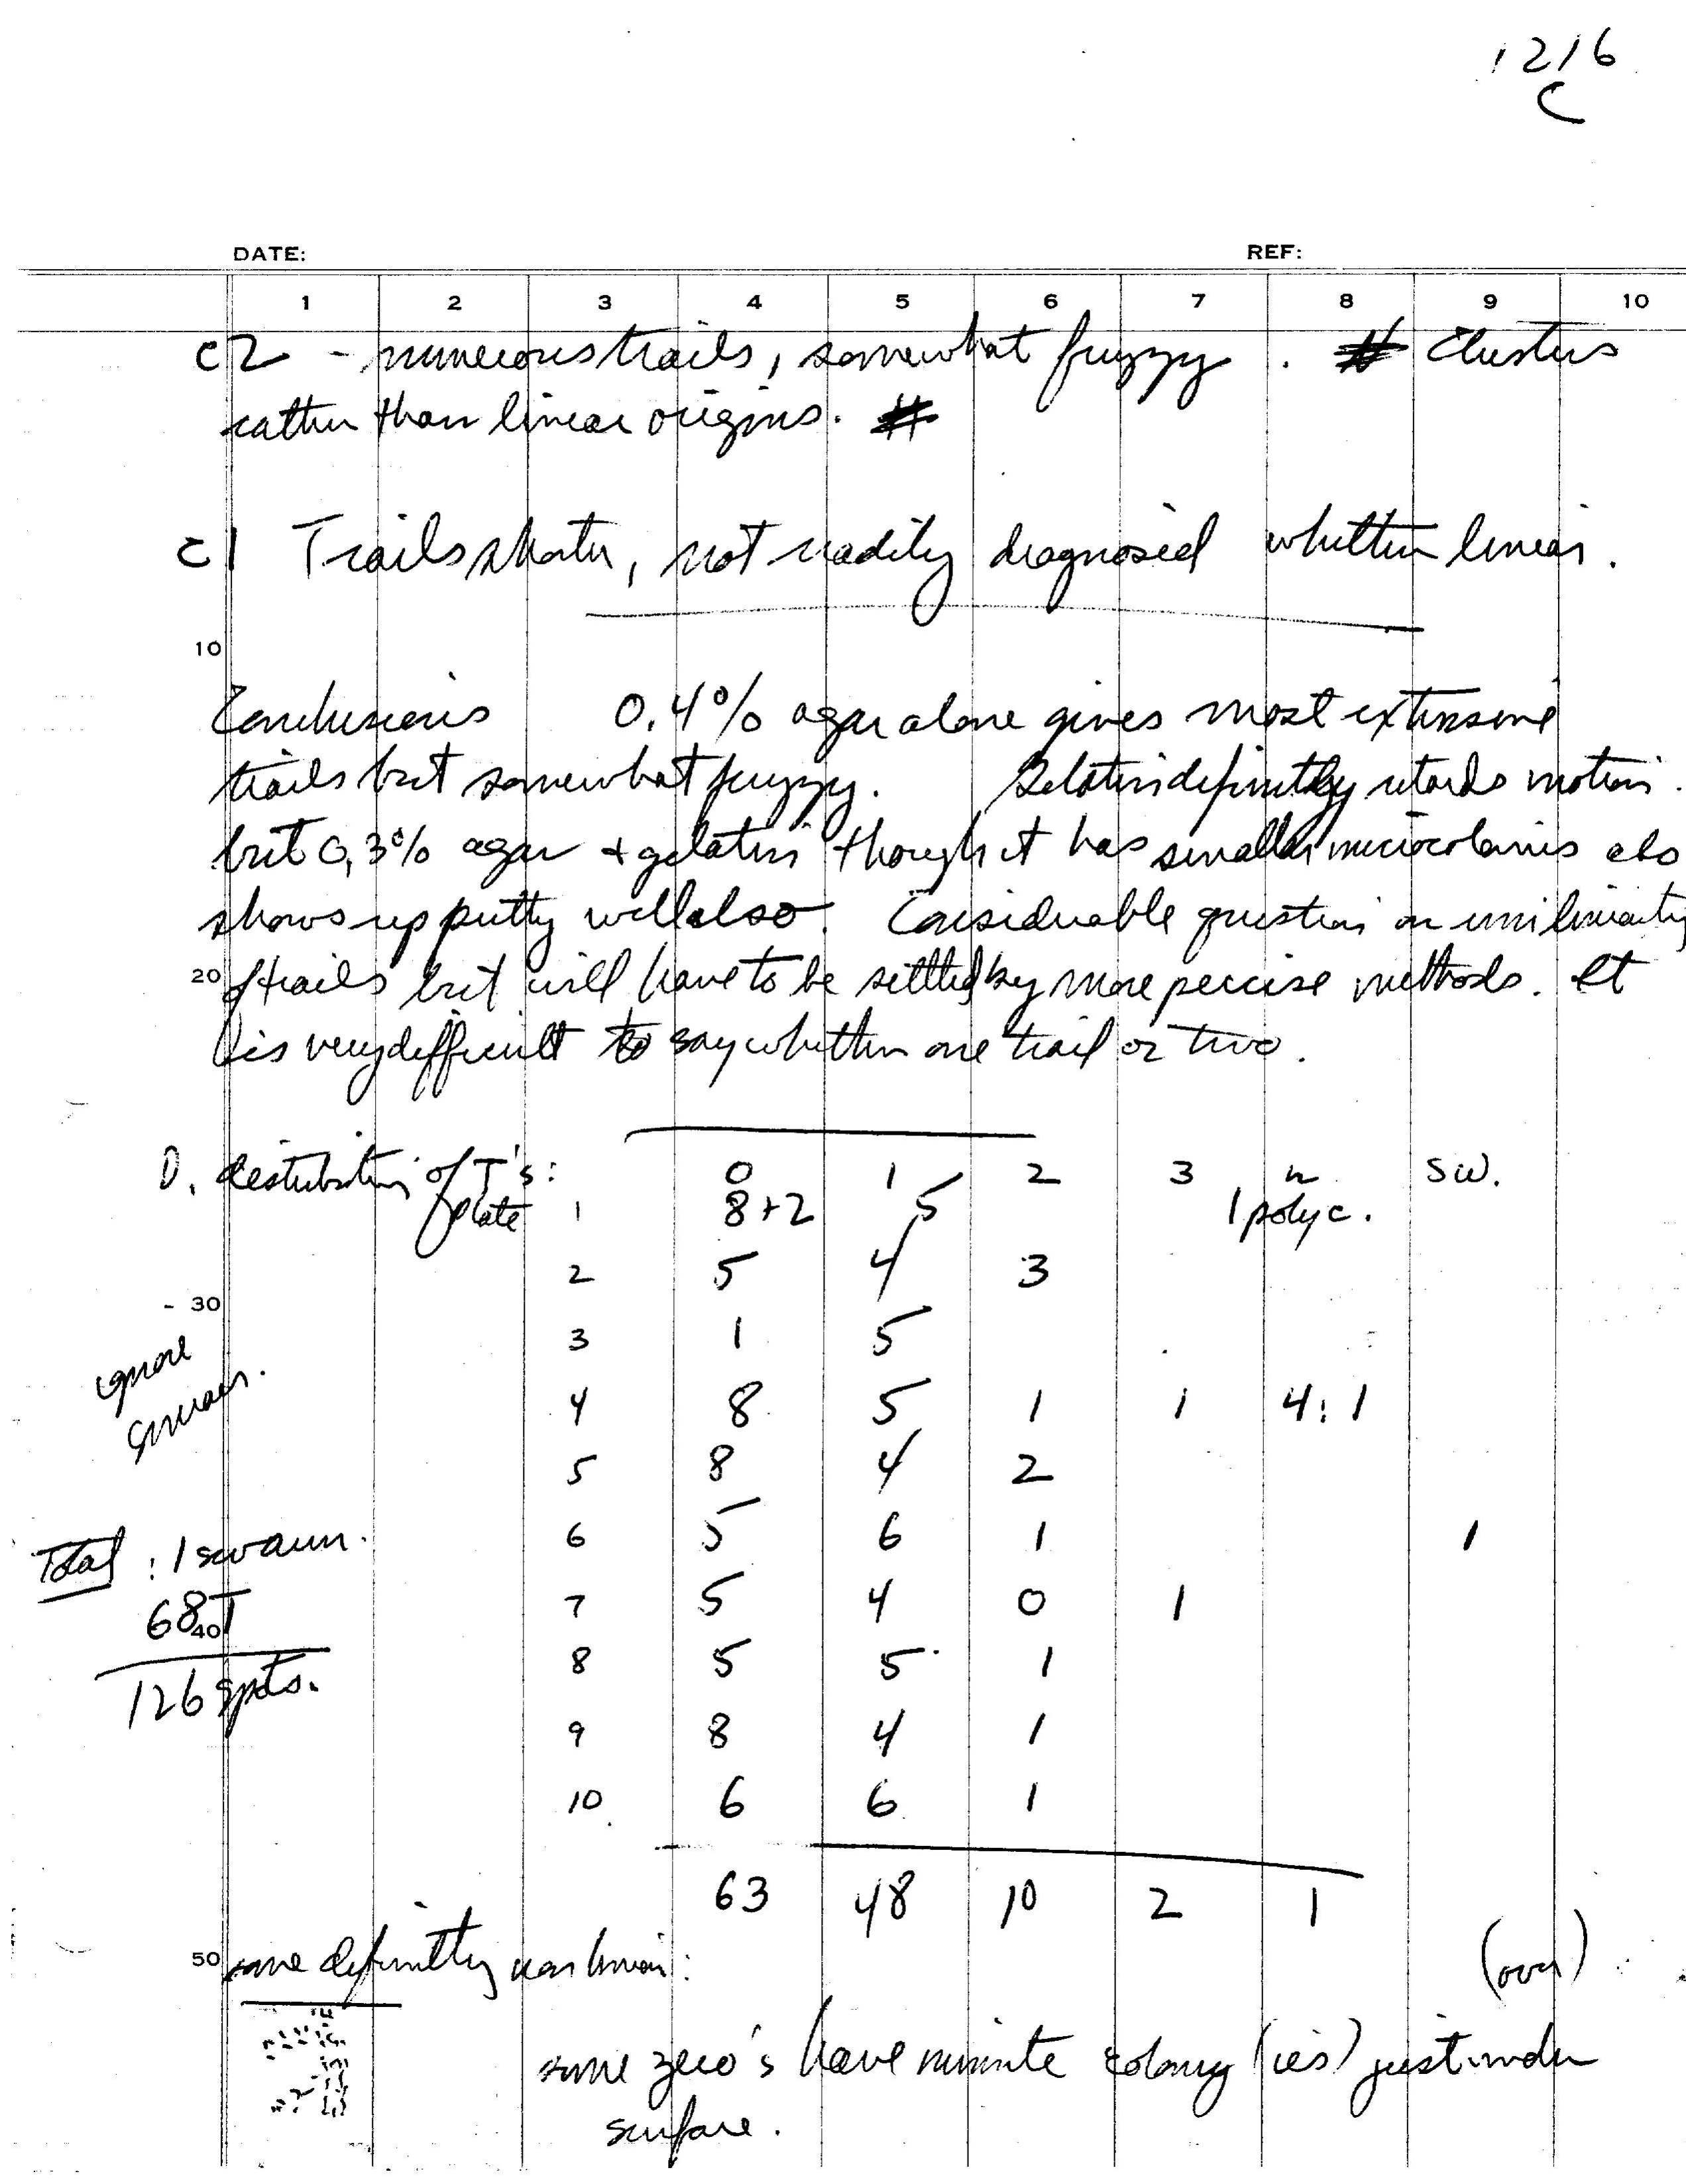 1216
C
DATE: REF:
1 2 3 4 5 6 7 8 9 10
C2 - numerous trails, somewhat fuzzy. Clusters
rather than linear origins.
C1 Trails shorter, not readily diagnosed whether linear.
10
Conclusions 0.4% agar alone gives most extensive
trails but somewhat fuzzy. Gelatin definitely retards motion.
but 0.3% agar + gelatin though it has smaller microcolonies also
shows up pretty well also. Considerable question on unilinearity
20 of trails but will have to be settled by more precise methods. It
is very difficult to say whether one trail or two.
D. distribution of T's: 0 1 2 3 n SW.
plate 1 8+2 5 1 polyc.
2 5 4 3
- 30
3 1 5
ignore
smears.
4 8 5 1 1 4:1
5 8 4 2
6 5 6 1 1
Total: 1 swarm.
7 5 4 0 1
68 T
40
8 5 5 1
126 spots.
9 8 4 1
10 6 6 1
63 48 10 2 1
50 some definitely nonlinear:
(over)
some zero's have minute colony (ies) just under
surface.